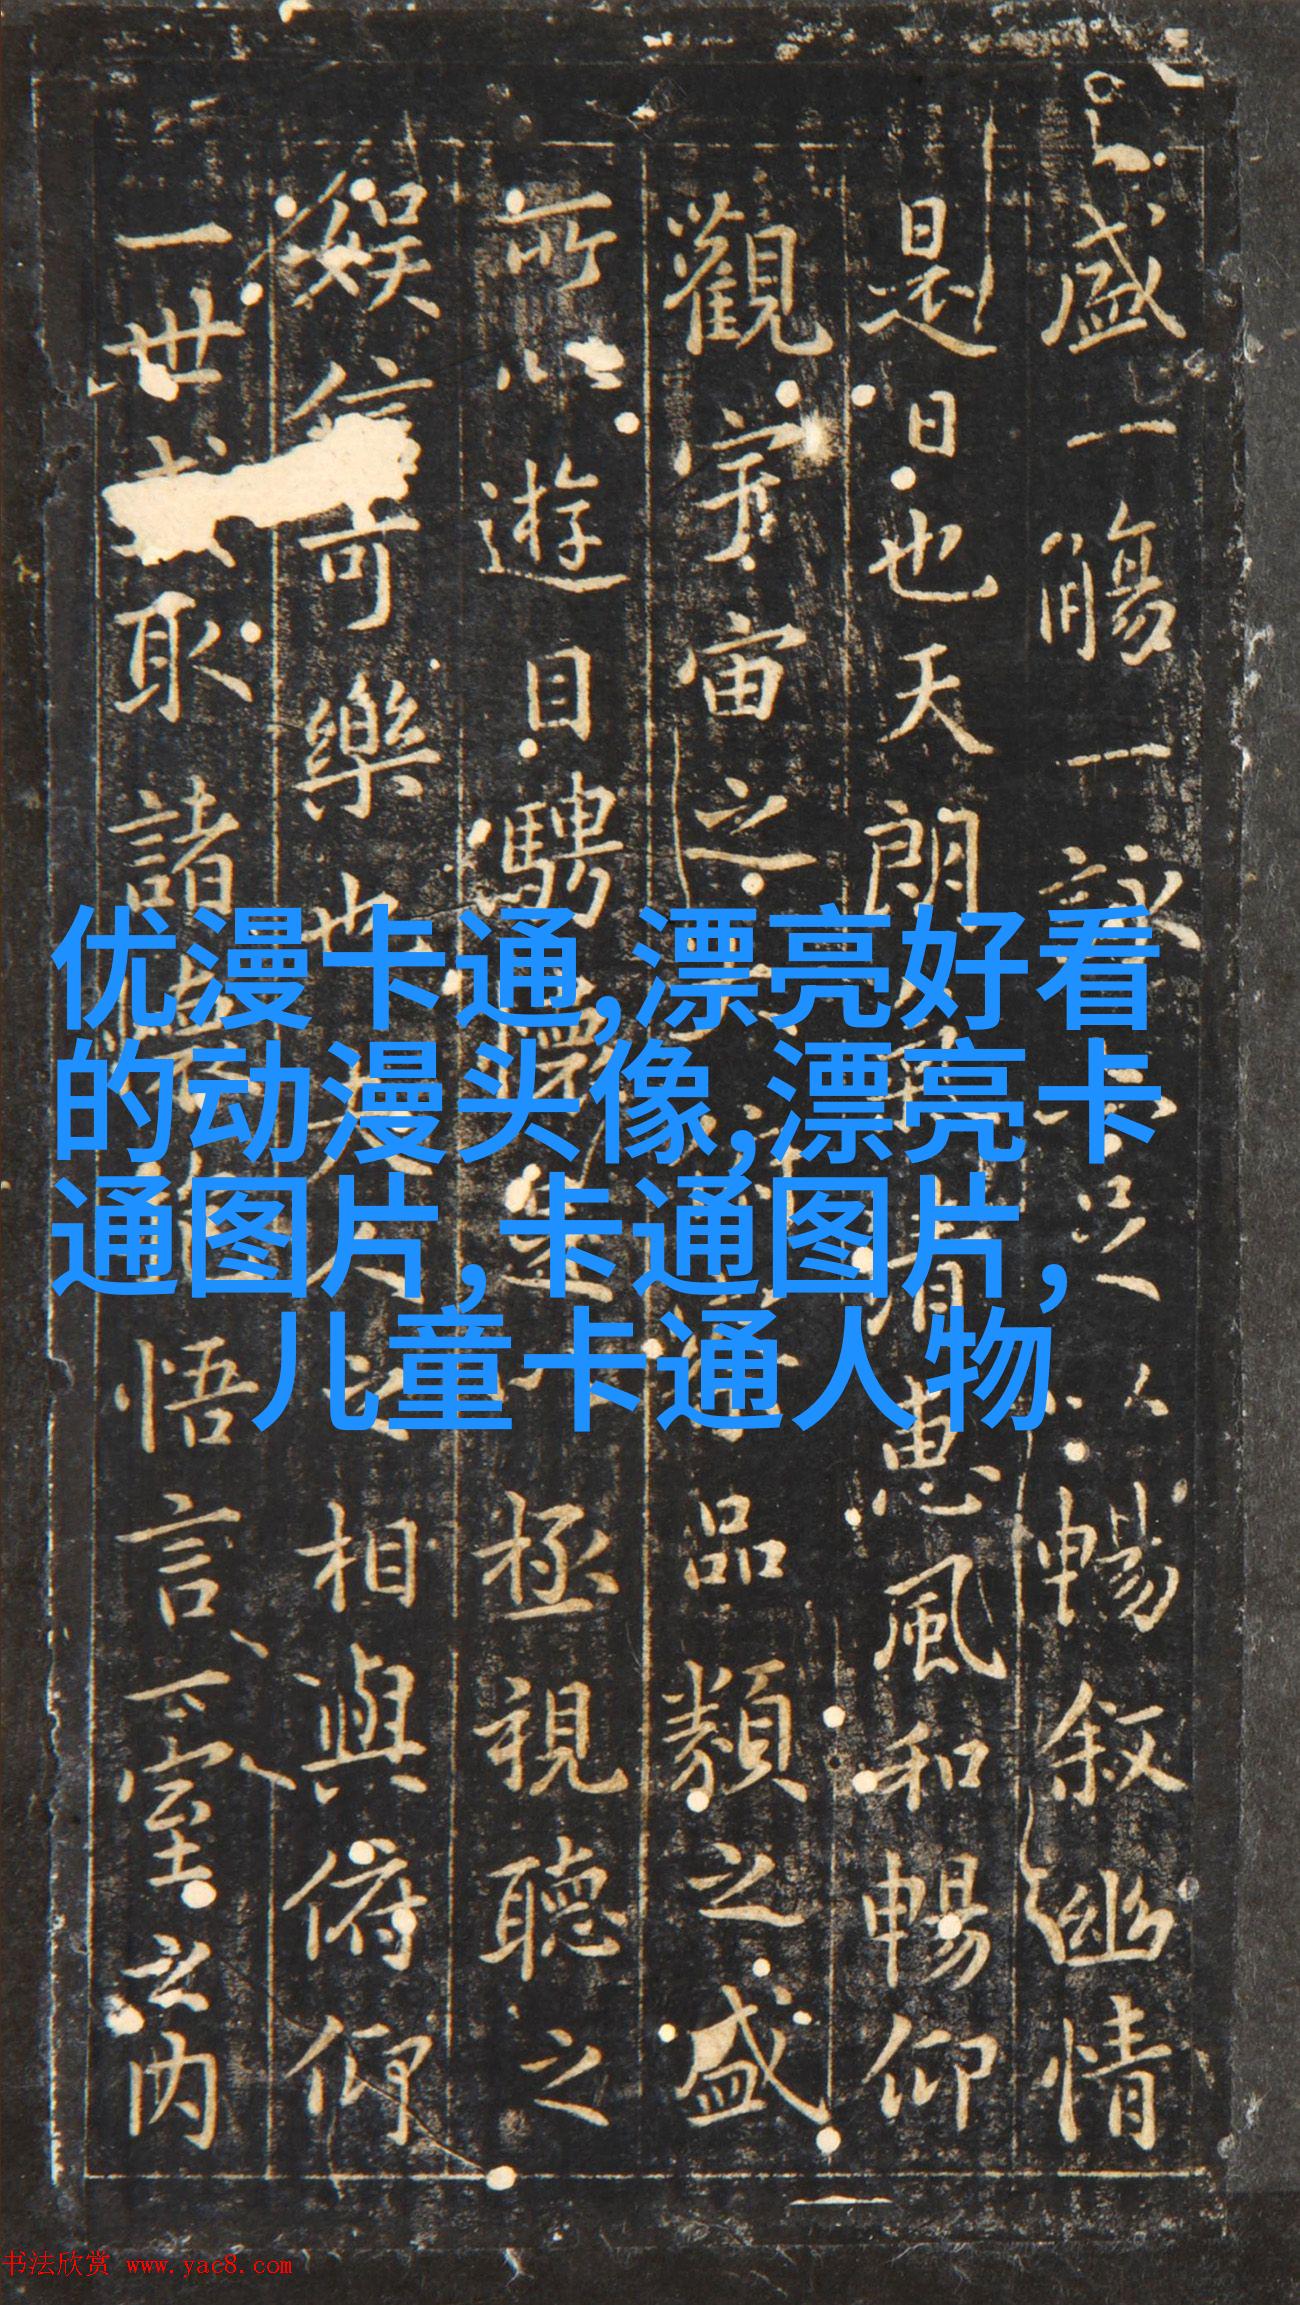 盛一觴一詠亦足以暢叙幽情
是日也天朗氣清惠風和暢仰
觀宇宙之大俯察品類之盛
所以遊目騁懷足以極視聽之
娛信可樂也夫人之相與俯仰
一世或取諸懷抱悟言一室之内
优漫卡通,漂亮好看
的动漫头像,漂亮卡
通图片,卡通图片,
儿童卡通人物
书法欣赏 www.yac8.com